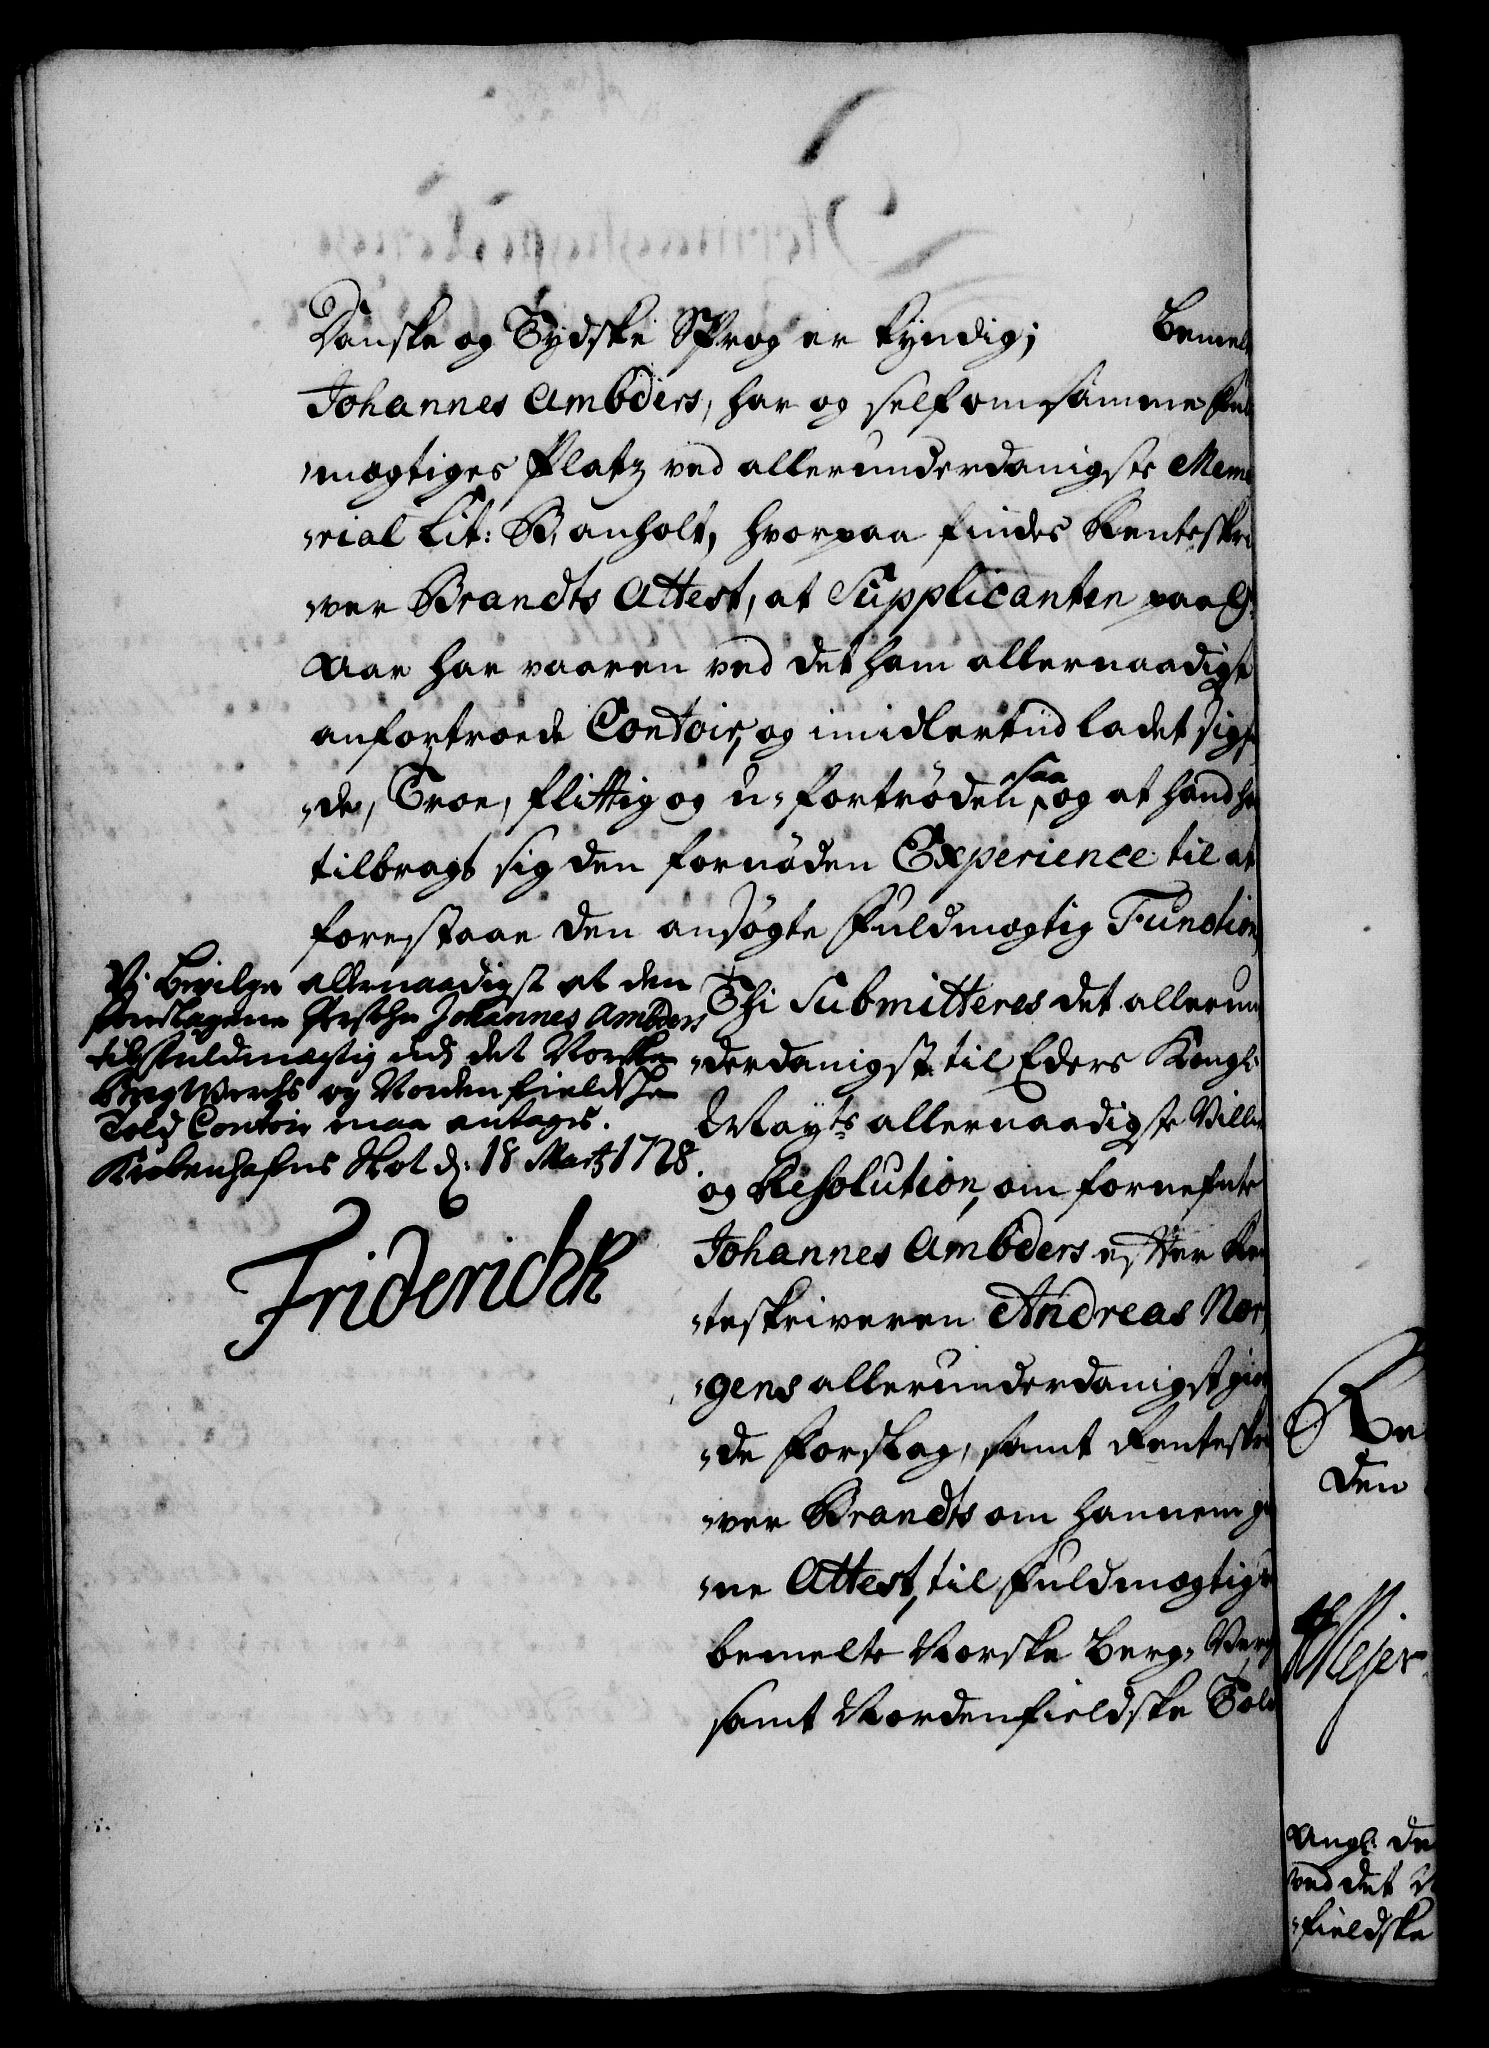 Danske og Tydske Sprog er kyndig; Bemelt
Johannes Ambders, har og self om samme Ful
„mogtiges Platz ved allerunderdanigste Memo
„rial Lit: B, anholt, hvorpaa findes Renteskri
„ver Brandts Attest, at Supplicanten paa
Aar har vaaren ved det ham allernaadigst
anfortroede Contoir, og imidlertiid ladet sig
„de, Troe, flittig og u-fortrøden, saa og at hand
tilbragt sig den fornøden Experience til at
forestaae den ansøgte Fuldmogtig Function,
Thi Submitteres det allerun
„derdanigst til Eders Kongl:
Mayts allernaadigste Villie
og Resolution, om fornefnte
Johannes Ambders efter Ren
„teskriveren Andreas Nør,
„gens allerunderdanigst giør
„de Forslag, samt Renteskri
„ver Brandts om hannem
„ne Attest, til Fuldmogtig
bemelte Norske Berg- Verch
samt Nordenfieldske Told
Vi bevilge allernaadigst at den
foreslagene Persohn Johannes Ambders
til Fuldmægtig udi det Norske
Berg Werchs og Nordenfieldske
Told Contoir maa antages.
Kiøbenhafns Slot d: 18 Martz 1728.
Friderich R
Re
den
Meyer
Angl: de
ved det N
„fieldske